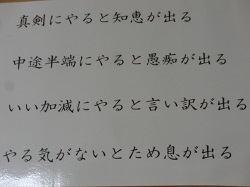 真剣にやると知恵が出る
中途半端にやると愚痴が出る
いい加減にやると言い訳が出る
やる気がないとため息が出る